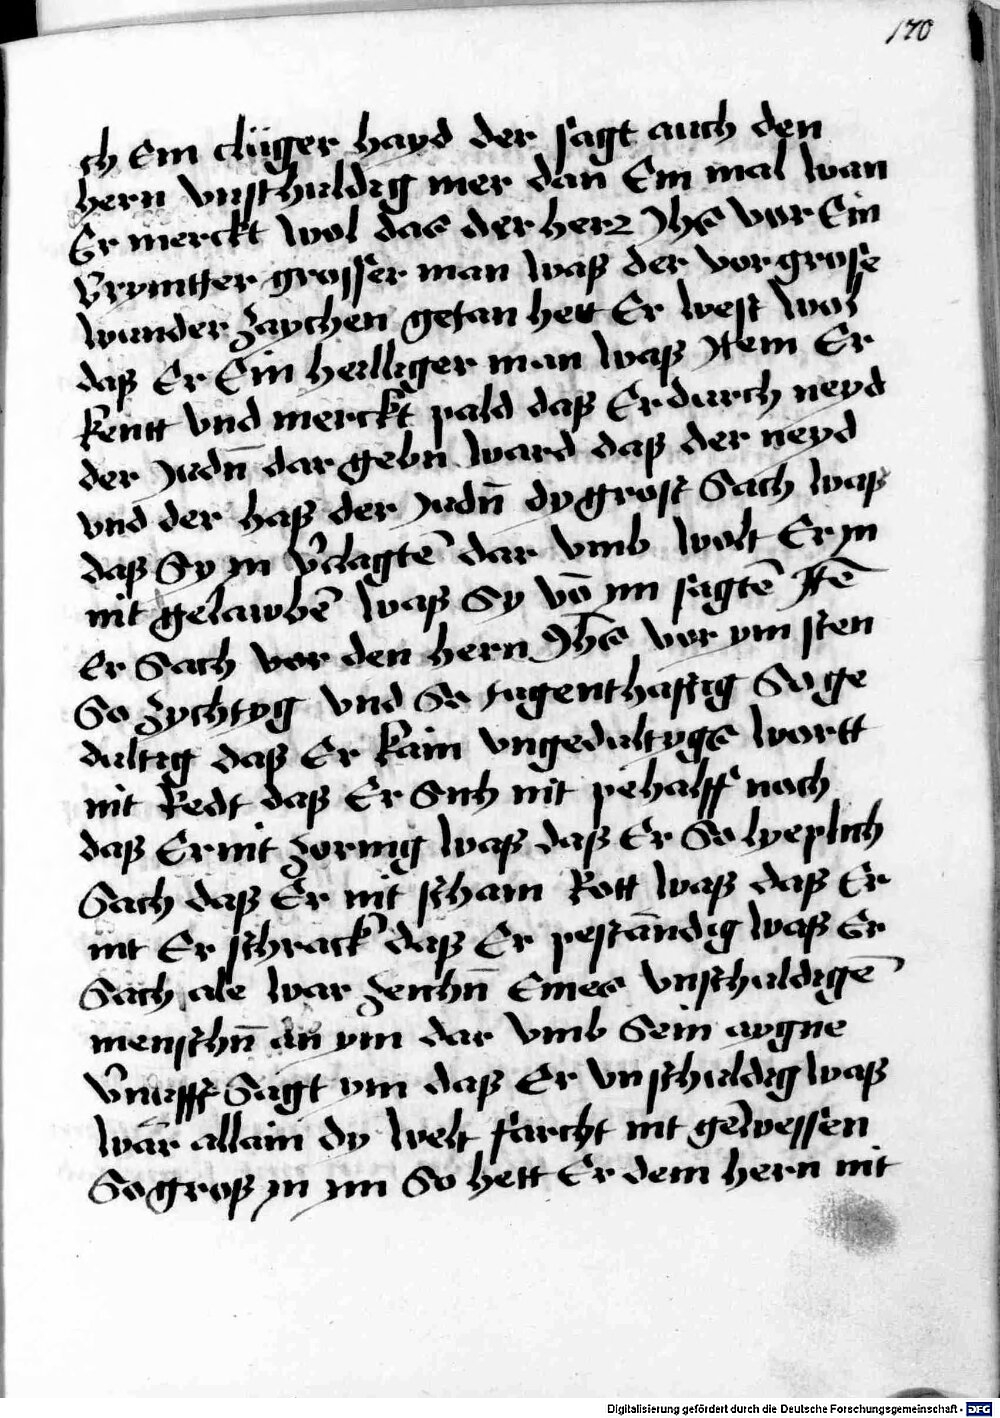 170
ch Ein clüger hayd der sagt auch den
hern vnschuldig mer dan Ein mal wan
Er merckt wol das der herz Jhs vor Ein
grosser man waß der vor grose
wunder zaychen getan hett Er west wol
daß Er Ein heilliger man waß Jtem Er
kentt vnd merckt pald daß Er durch neyd
der Judn̄ dar gebn ward daß der neyd
vnd der haß der Judn̄ dy grost Sach waß
daß Sy yn v̉clagtē dar vmb wolt Er yn
nit gelawbē waß Sy vō ym sagtē Jtē
Er Sach vor den hern Jhs̄ vor ym sten
So zychtyg vnd So tugenthafftig So ge
dultig daß Er kain vngedultygs wortt
nit Redt daß Er Sich nit pehalff noch
daß Er nit zornig waß daß Er So lyeplich
Sach daß Er nit scham Rott waß daß Er
nit Er schrack daß Er pestāndig waß Er
Sach ale war zeichn̄ Eines vnschuldigē
menschn̄ an ym dar vmb Sein aygne
v̉nufft Sagt ym daß Er vnschuldig waß
wār allain dy welt farcht nit gewessen
So groß yn ym So hett Er dem hern nit
Digitalisierung gefördert durch die Deutsche Forschungsgemeinschaft - DFG